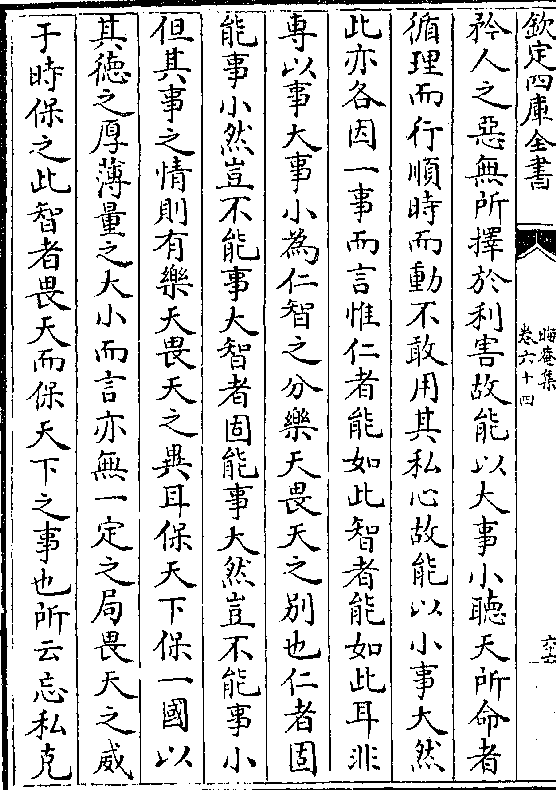 欽定四庫全書
晦庵集
卷六十四
矜人之惡無所擇於利害故能以大事小聽天所命者
循理而行順時而動不敢用其私心故能以小事大然
此亦各因一事而言惟仁者能如此智者能如此耳非
專以事大事小為仁智之分樂天畏天之別也仁者固
能事小然豈不能事大智者固能事大然豈不能事小
但其事之情則有樂天畏天之異耳保天下保一國以
其德之厚薄量之大小而言亦無一定之局畏天之威
于時保之此智者畏天而保天下之事也所云忘私克